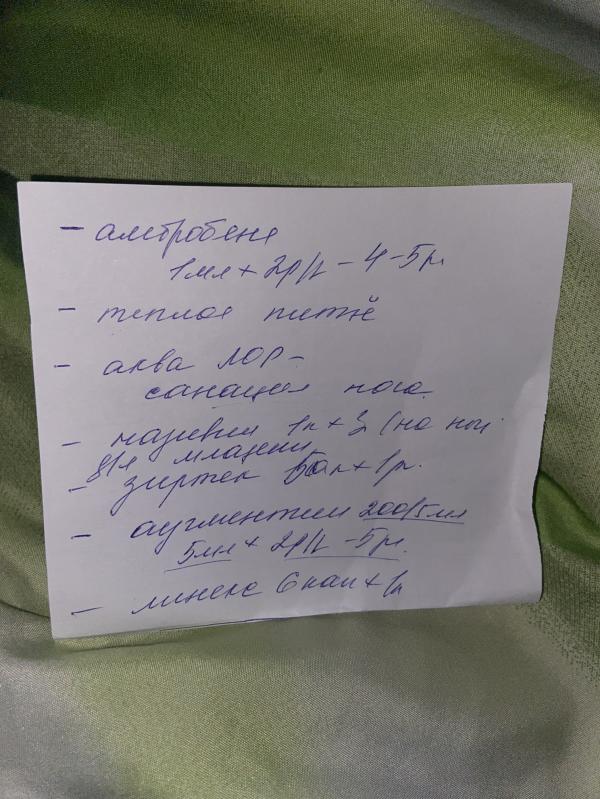 - амбробене
1мл + 2р/д - 4-5дн
- теплое питьё
- аква ЛОР -
санация носа.
- називин 1к + 3 (на ночь
для младенц
- зиртек 5кап + 1р.
- аугментин 200/5мл
5мл + 2р/д - 5дн.
- линекс 6кап + 1р